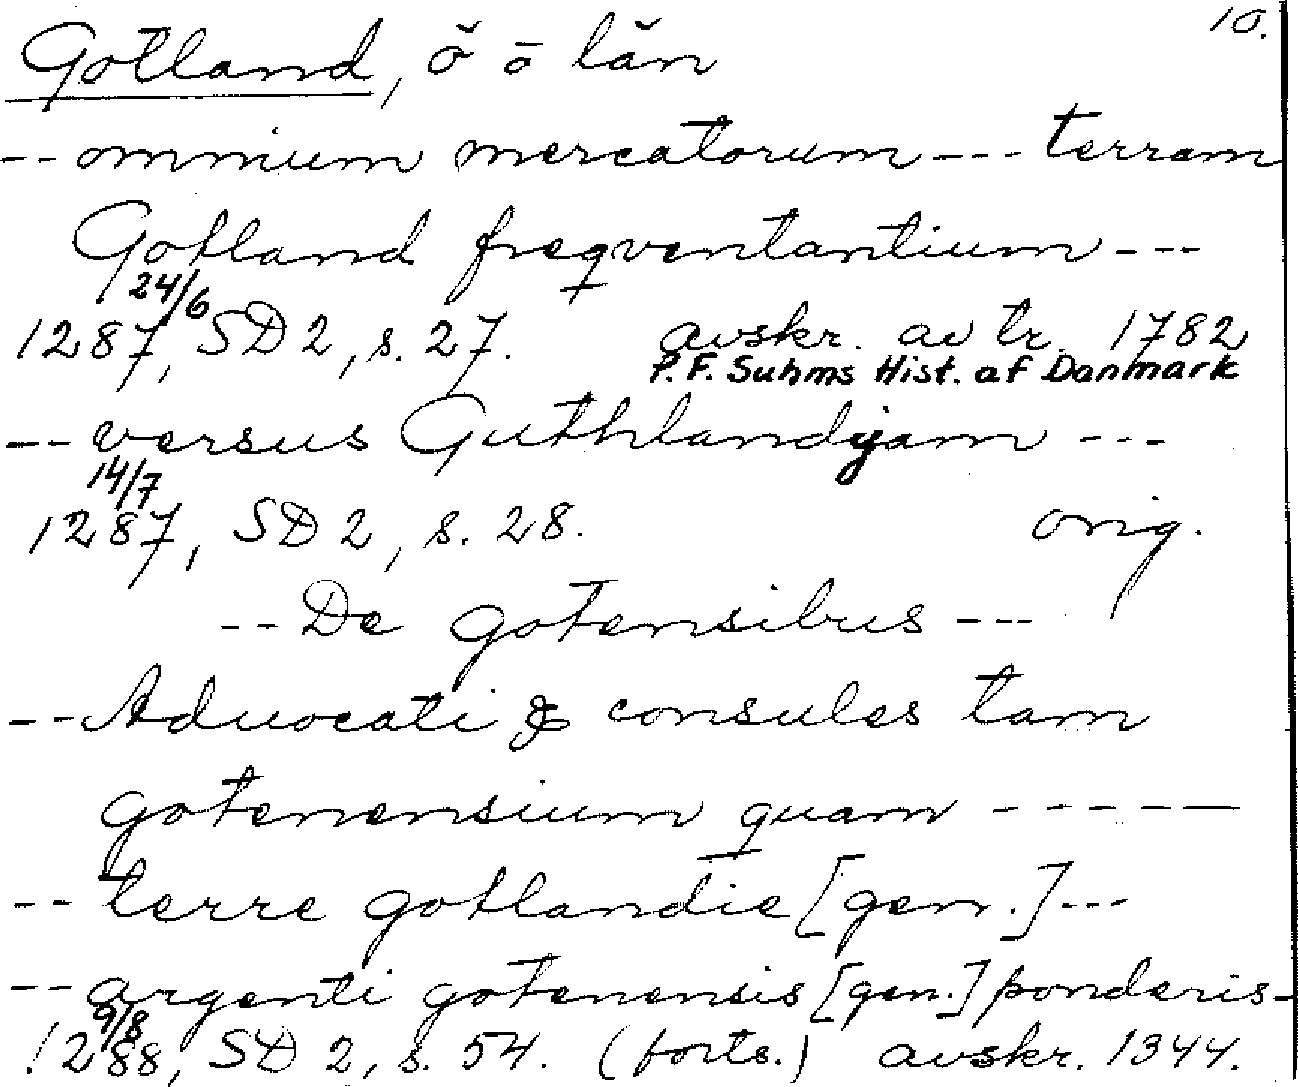 10.
Gotland, ö o län
-- omnium mercatorum --- terram
Gotland freqventantium ---
24/6
1287, SD 2, s. 27. avskr. av tr. 1782
P. F. Suhms Hist. af Danmark
-- versus Guthlandyam ---
14/7
1287, SD 2, s. 28. orig.
-- De gotensibus ---
-- Aduocati & consules tam
gotenensium quam -----
-- terre gotlandie [gen.] ---
-- argenti gotenensis [gen.] ponderis -
9/8
1288, SD 2, s. 54. (forts.) avskr. 1344.